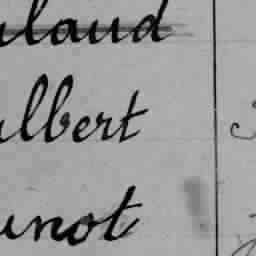 laud
lbert
unot